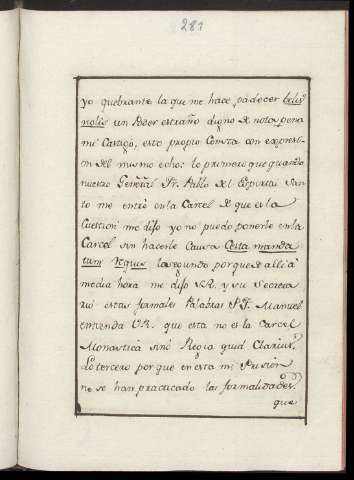 281
yo quebrante la que me hace padecer velis
nolis un Poder estraño digno de nota y pena
mi Castigo, esto propio Consta con expresi-
on del mismo echo: lo primero que quando
nuestro General Fr. Pablo del Espiritu San-
to me entrò en la Carcel de que es la
Cuestion me dijo yo no puedo ponerle en la
Carcel sin hacerle Causa
tum Regis lo segundo porque de alli à
media hora me dijo V.R. y su Secreta
rio estas formales Palabras P. F. Manuel
entienda V.R. que esta no es la Carcel
Monastica sinò Regia quid Clarius?
Lo tercero porque en esta mi Prision
no se han practicado las formalidades
que